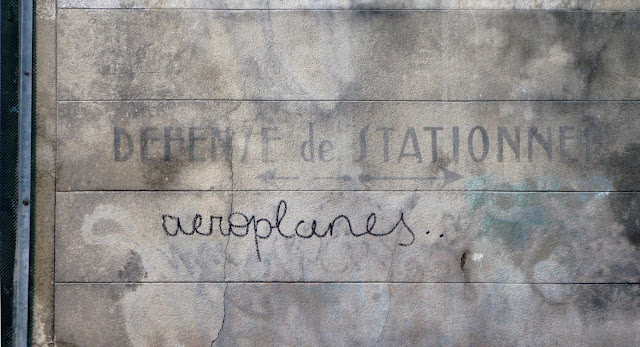 DEFENSE de STATIONNER
aeroplanes..